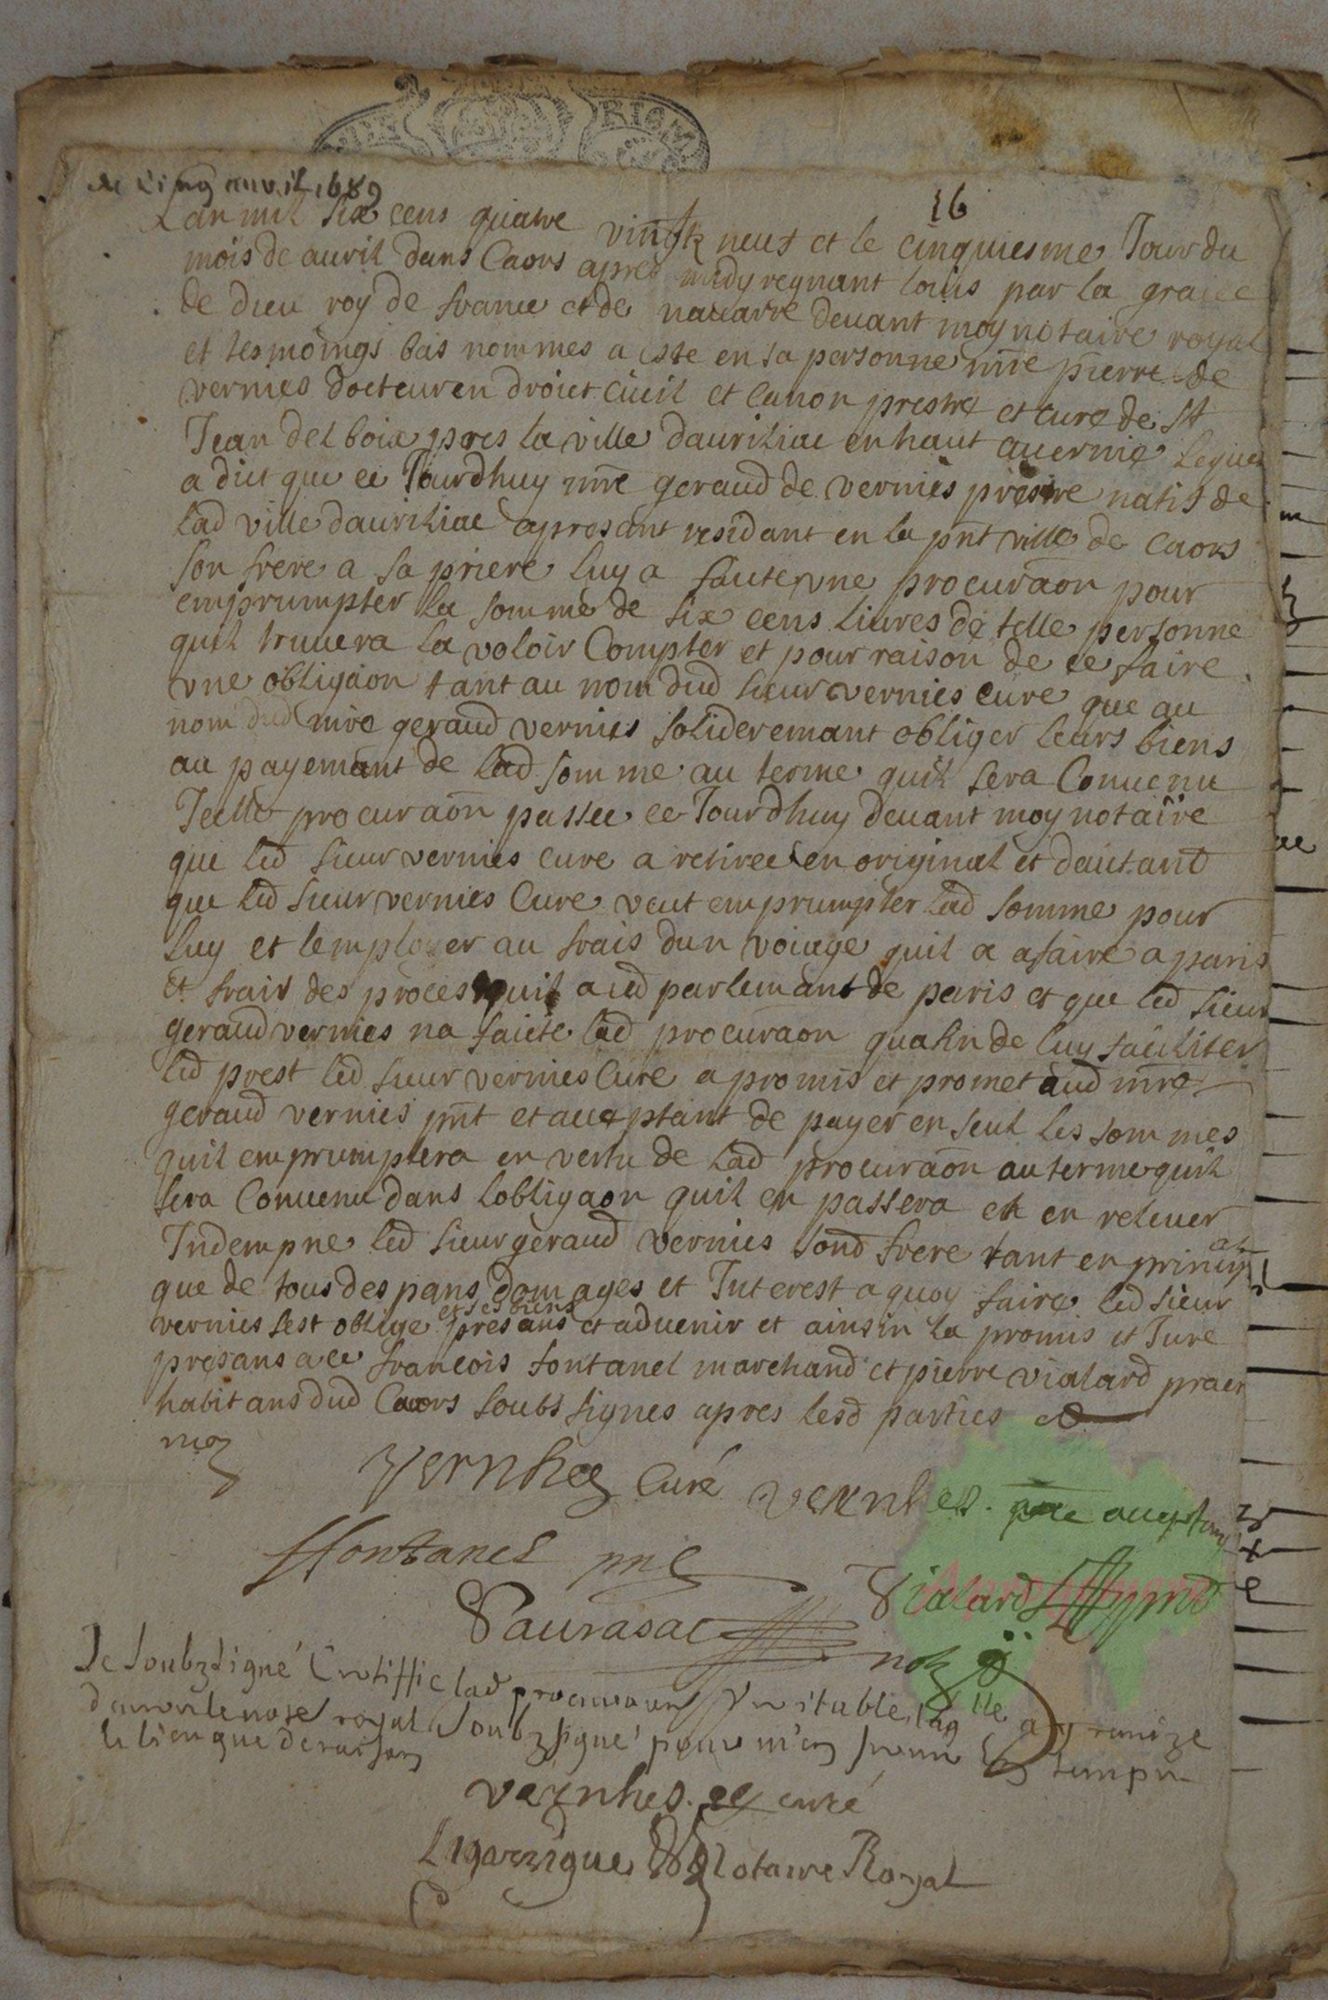 RION
de cinq avril 1689
16
Lan mil six cens quatre vingtz neuf et le cinquiesme Jour du
mois de avril dans Caors apres midy regnant louis par la grace
de dieu roy de france et de navarre devant moy notaire royal
et tesmoings bas nommes a este en sa personne mre pierre de
vernies docteur en droict civil et canon prestre et cure de St
Jean del boix pres la ville dauriliac en haut avernie lequel
a dict que ce Jourdhuy mre geraud de vernies prestre natif de
lad ville dauriliac apresant residant en la pnt ville de Caors
son frere a sa priere luy a faicte une procuraon pour
emprumpter la somme de six cens livres de telle personne
quil truvera la voloir Compter et pour raison de ce faire
une obligaon tant au nom dud sieur vernies cure que au
nom dud mre geraud vernies solideremant obliger leurs biens
au payemant de lad somme au terme quil sera Convenu
Jcelle procuraon passee ce Jourdhuy devant moy notaire
que led sieur vernies cure a retiree en original et dautant
que led sieur vernies Cure veut emprumpter lad somme pour
luy et lemployer au frais dun voiage quil a afaire a paris
et frais des proces quil a aud parlemant de paris et que led sieur
geraud vernies na faicte lad procuraon quafin de luy faciliter
led prest led sieur vernies Cure a promis et promet aud mre
geraud vernies pnt et aceptant de payer en seul les sommes
quil emprumptera en vertu de lad procuraon au terme quil
sera Convenu dans lobligaon quil en passera et en relever
Indempne led sieur geraud vernies sond frere tant en principal
que de tous despans domages et Interest a quoy faire led sieur
vernies sest oblige et ses biens presans et advenir et ainsin la promis et Jure
presans a ce francois fontanel marchand et pierre vialard praen
habitans dud Caors soubs signes apres lesd parties et
moy
Vernhes Curé vernhes. pre aceptant
ffontanel pnt
Vialard pnt
Daurasac
notr
Je soubzsigné Certiffie lad procuraon veritable laqlle ay remize
devers le note royal soubzsigné pour m'en servir en temps
et lieu que de raison
vernhes. curé
Lagarrigue Notaire Royal